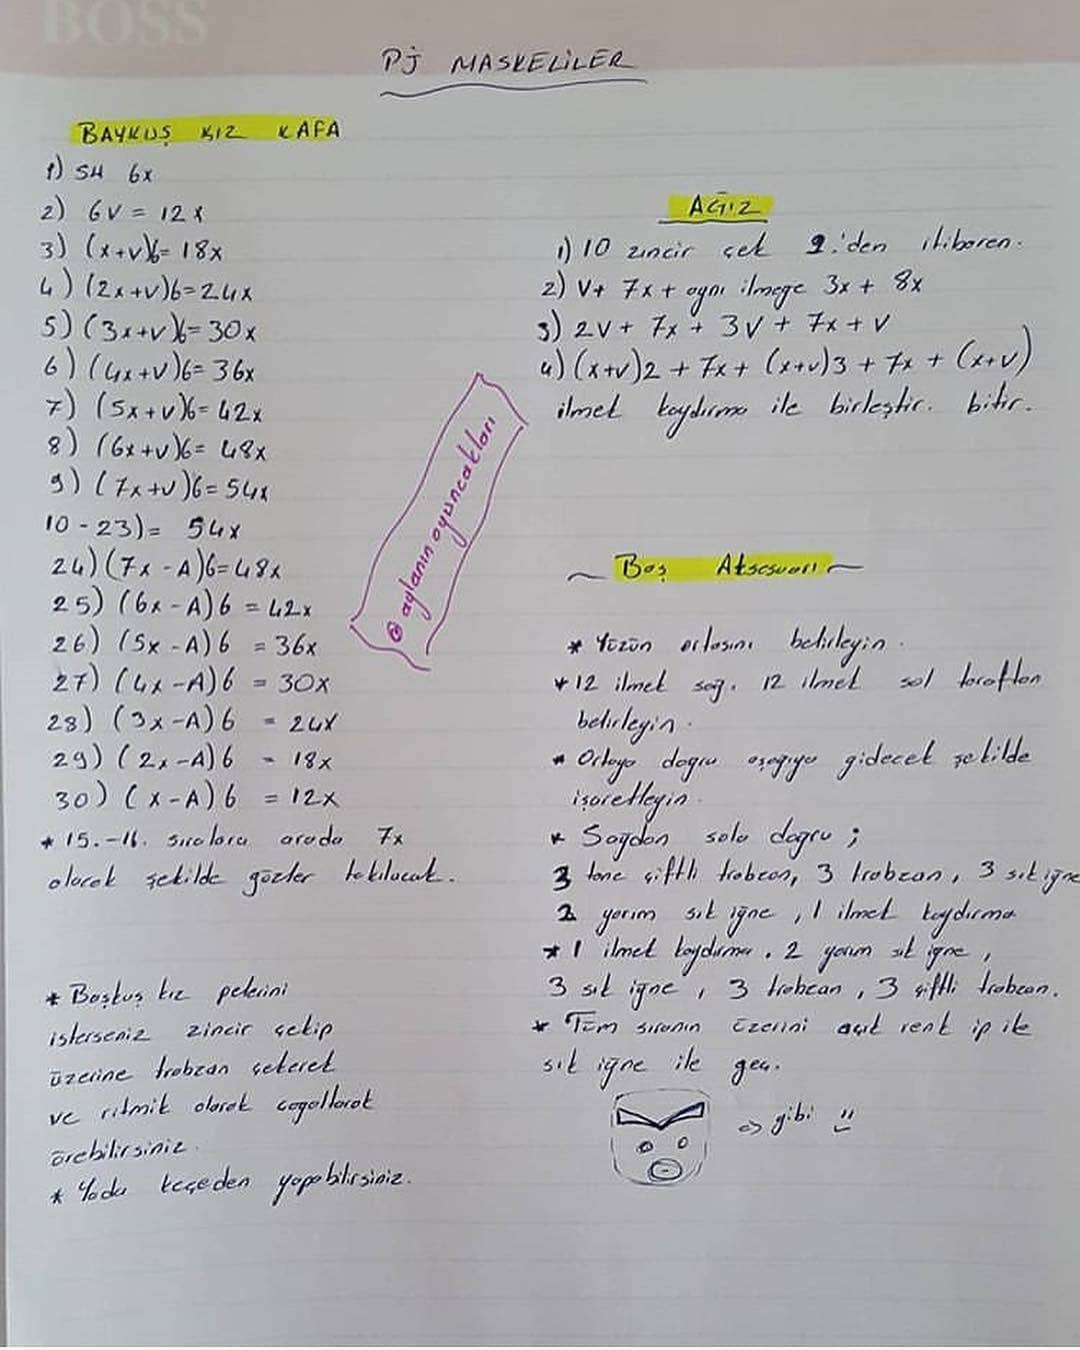 BOSS
PJ MASKELİLER
BAYKUŞ KIZ KAFA
1) SH 6x
2) 6V = 12x
3) (x+V)6= 18x
4) (2x+V)6=24x
5) (3x+V)6= 30x
6) (4x+V)6= 36x
7) (5x+V)6= 42x
8) (6x+V)6= 48x
9) (7x+V)6= 54x
10 - 23)= 54x
24) (7x - A)6=48x
25) (6x - A)6 = 42x
26) (5x - A)6 = 36x
27) (4x - A)6 = 30x
28) (3x - A)6 = 24x
29) (2x - A)6 = 18x
30) (x - A)6 = 12x
* 15.-16. sıralara arada 7x
olacak şekilde gözler takılacak.
* Baykuş kız pelerini
isterseniz zincir çekip
üzerine trabzan çekerek
ve ritmik olarak çogaltarak
örebilirsiniz.
* Yada keçeden yapabilirsiniz.
@aylanın oyuncakları
AĞIZ
1) 10 zincir çek 2.'den itibaren.
2) V+ 7x + aynı ilmeğe 3x + 8x
3) 2V + 7x + 3V + 7x + V
4) (x+V)2 + 7x + (x+V)3 + 7x + (x+V)
ilmek kaydırma ile birleştir. bitir.
~ Baş Aksesuarı ~
* Yüzün ortasını belirleyin.
* 12 ilmek sağ. 12 ilmek sol taraftan
belirleyin.
* Ortaya dogru aşagıya gidecek şekilde
işaretleyin.
* Sağdan sola dogru ;
3 tane çiftli trabzan, 3 trabzan, 3 sık iğne
2 yarım sık iğne, 1 ilmek kaydırma
* 1 ilmek kaydırma. 2 yarım sık iğne,
3 sık iğne, 3 trabzan, 3 çiftli trabzan.
* Tüm sıranın üzerini açık renk ip ile
sık iğne ile geç.
=> gibi